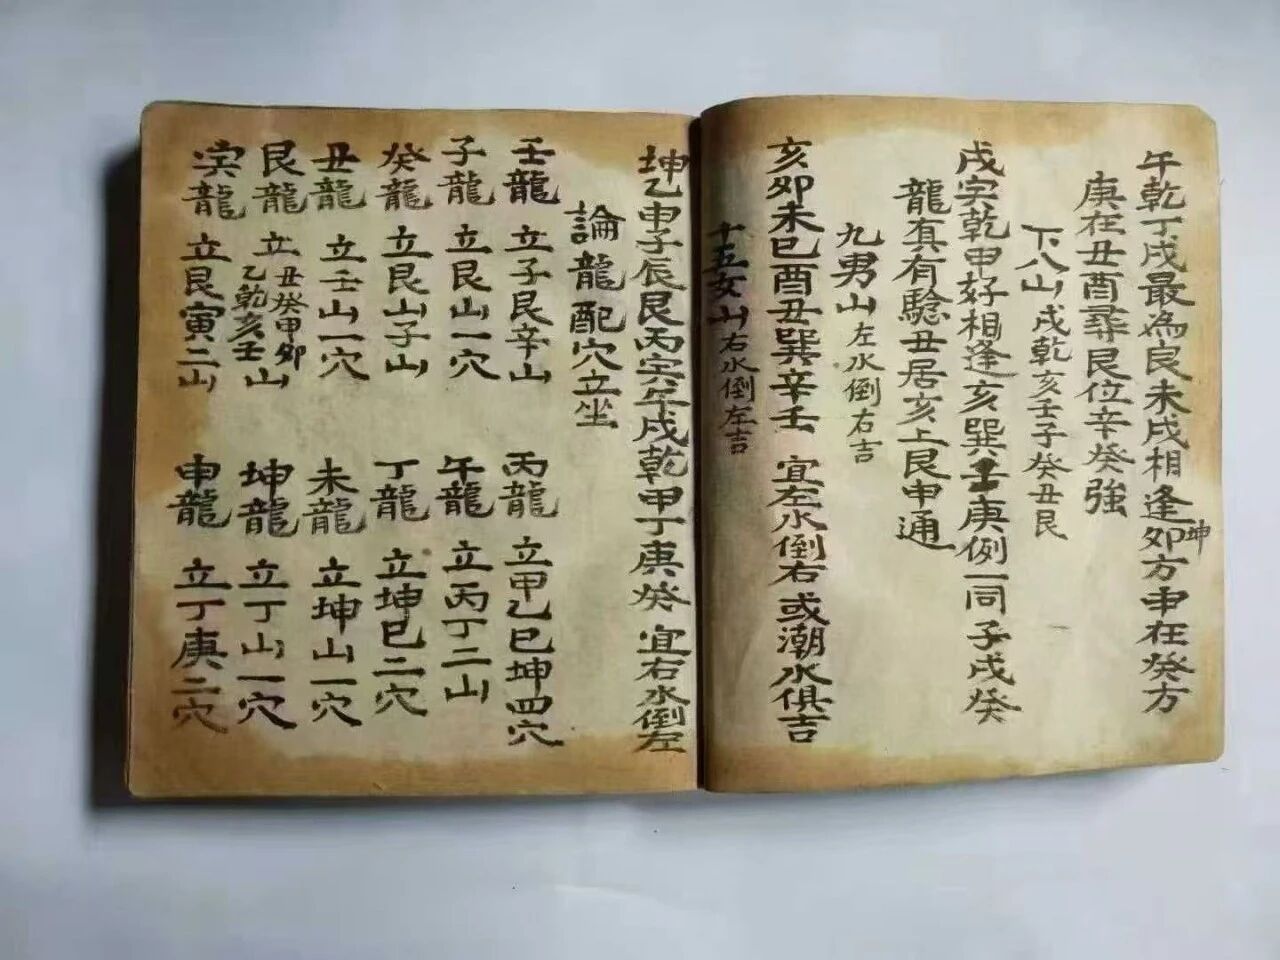 午乾丁戌最為良未戌相逢卯方申在癸方
坤
庚在丑酉葬艮位辛癸強
下八山戌乾亥壬子癸丑艮
戌寅乾甲好相逢亥巽壬庚例一同子戌癸
龍真有驗丑居亥上艮申通
九男山左水倒右吉
亥卯未巳酉丑巽辛壬 宜左水倒右或潮水俱吉
十五女山右水倒左吉
坤乙申子辰艮丙寅午戌乾甲丁庚癸 宜右水倒左
論龍配穴立坐
壬龍 立子艮辛山 丙龍 立甲乙巳坤四穴
子龍 立艮山一穴 午龍 立丙丁二山
癸龍 立艮山子山 丁龍 立坤巳二穴
丑龍 立壬山一穴 未龍 立坤山一穴
艮龍 立丑癸甲卯乙乾亥壬山 坤龍 立丁山一穴
寅龍 立艮寅二山 申龍 立丁庚二穴